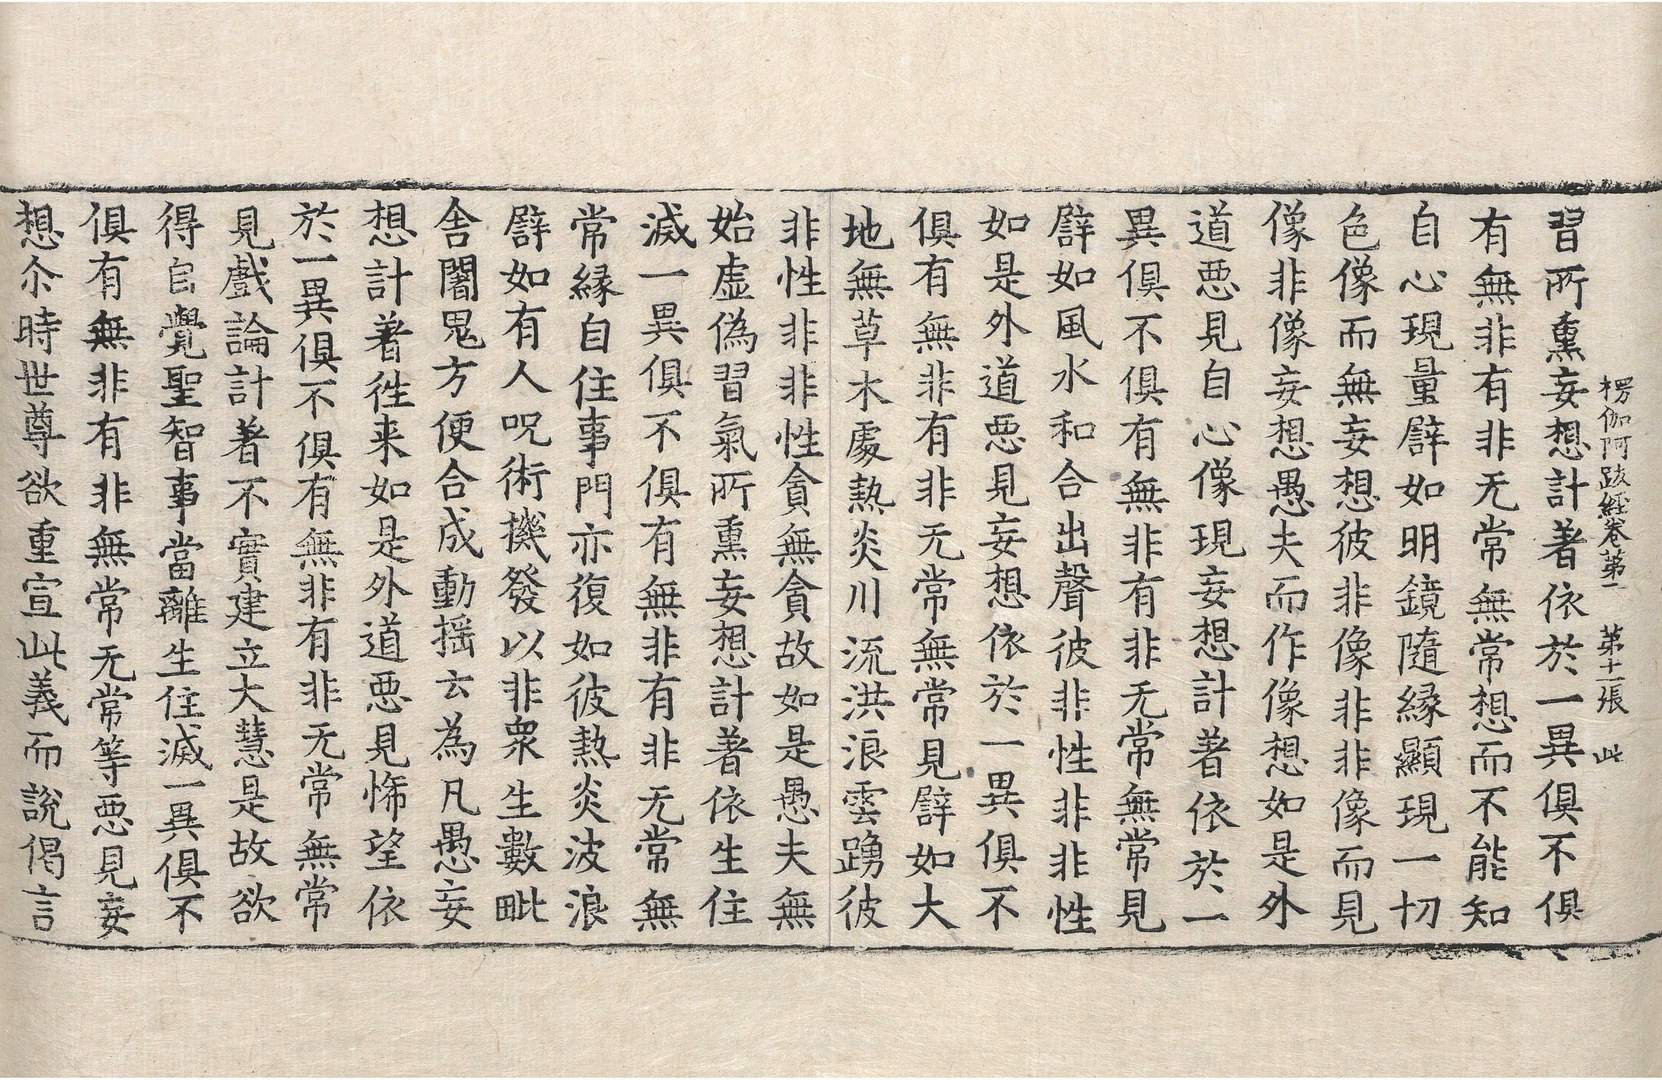 楞伽阿跋經卷第二　第十一張　此
習所熏妄想計著依於一異俱不俱
有無非有非无常無常想而不能知
自心現量譬如明鏡隨緣顯現一切
色像而無妄想彼非像非非像而見
像非像妄想愚夫而作像想如是外
道惡見自心像現妄想計著依於一
異俱不俱有無非有非无常無常見
譬如風水和合出聲彼非性非非性
如是外道惡見妄想依於一異俱不
俱有無非有非无常無常見譬如大
地無草木處熱炎川流洪浪雲踴彼
非性非非性貪無貪故如是愚夫無
始虛偽習氣所熏妄想計著依生住
滅一異俱不俱有無非有非无常無
常緣自住事門亦復如彼熱炎波浪
譬如有人呪術機發以非眾生數毗
舍闍鬼方便合成動搖云為凡愚妄
想計著徃来如是外道惡見悕望依
於一異俱不俱有無非有非无常無常
見戲論計著不實建立大慧是故欲
得自覺聖智事當離生住滅一異俱不
俱有無非有非無常无常等惡見妄
想尒時世尊欲重宣此義而說偈言